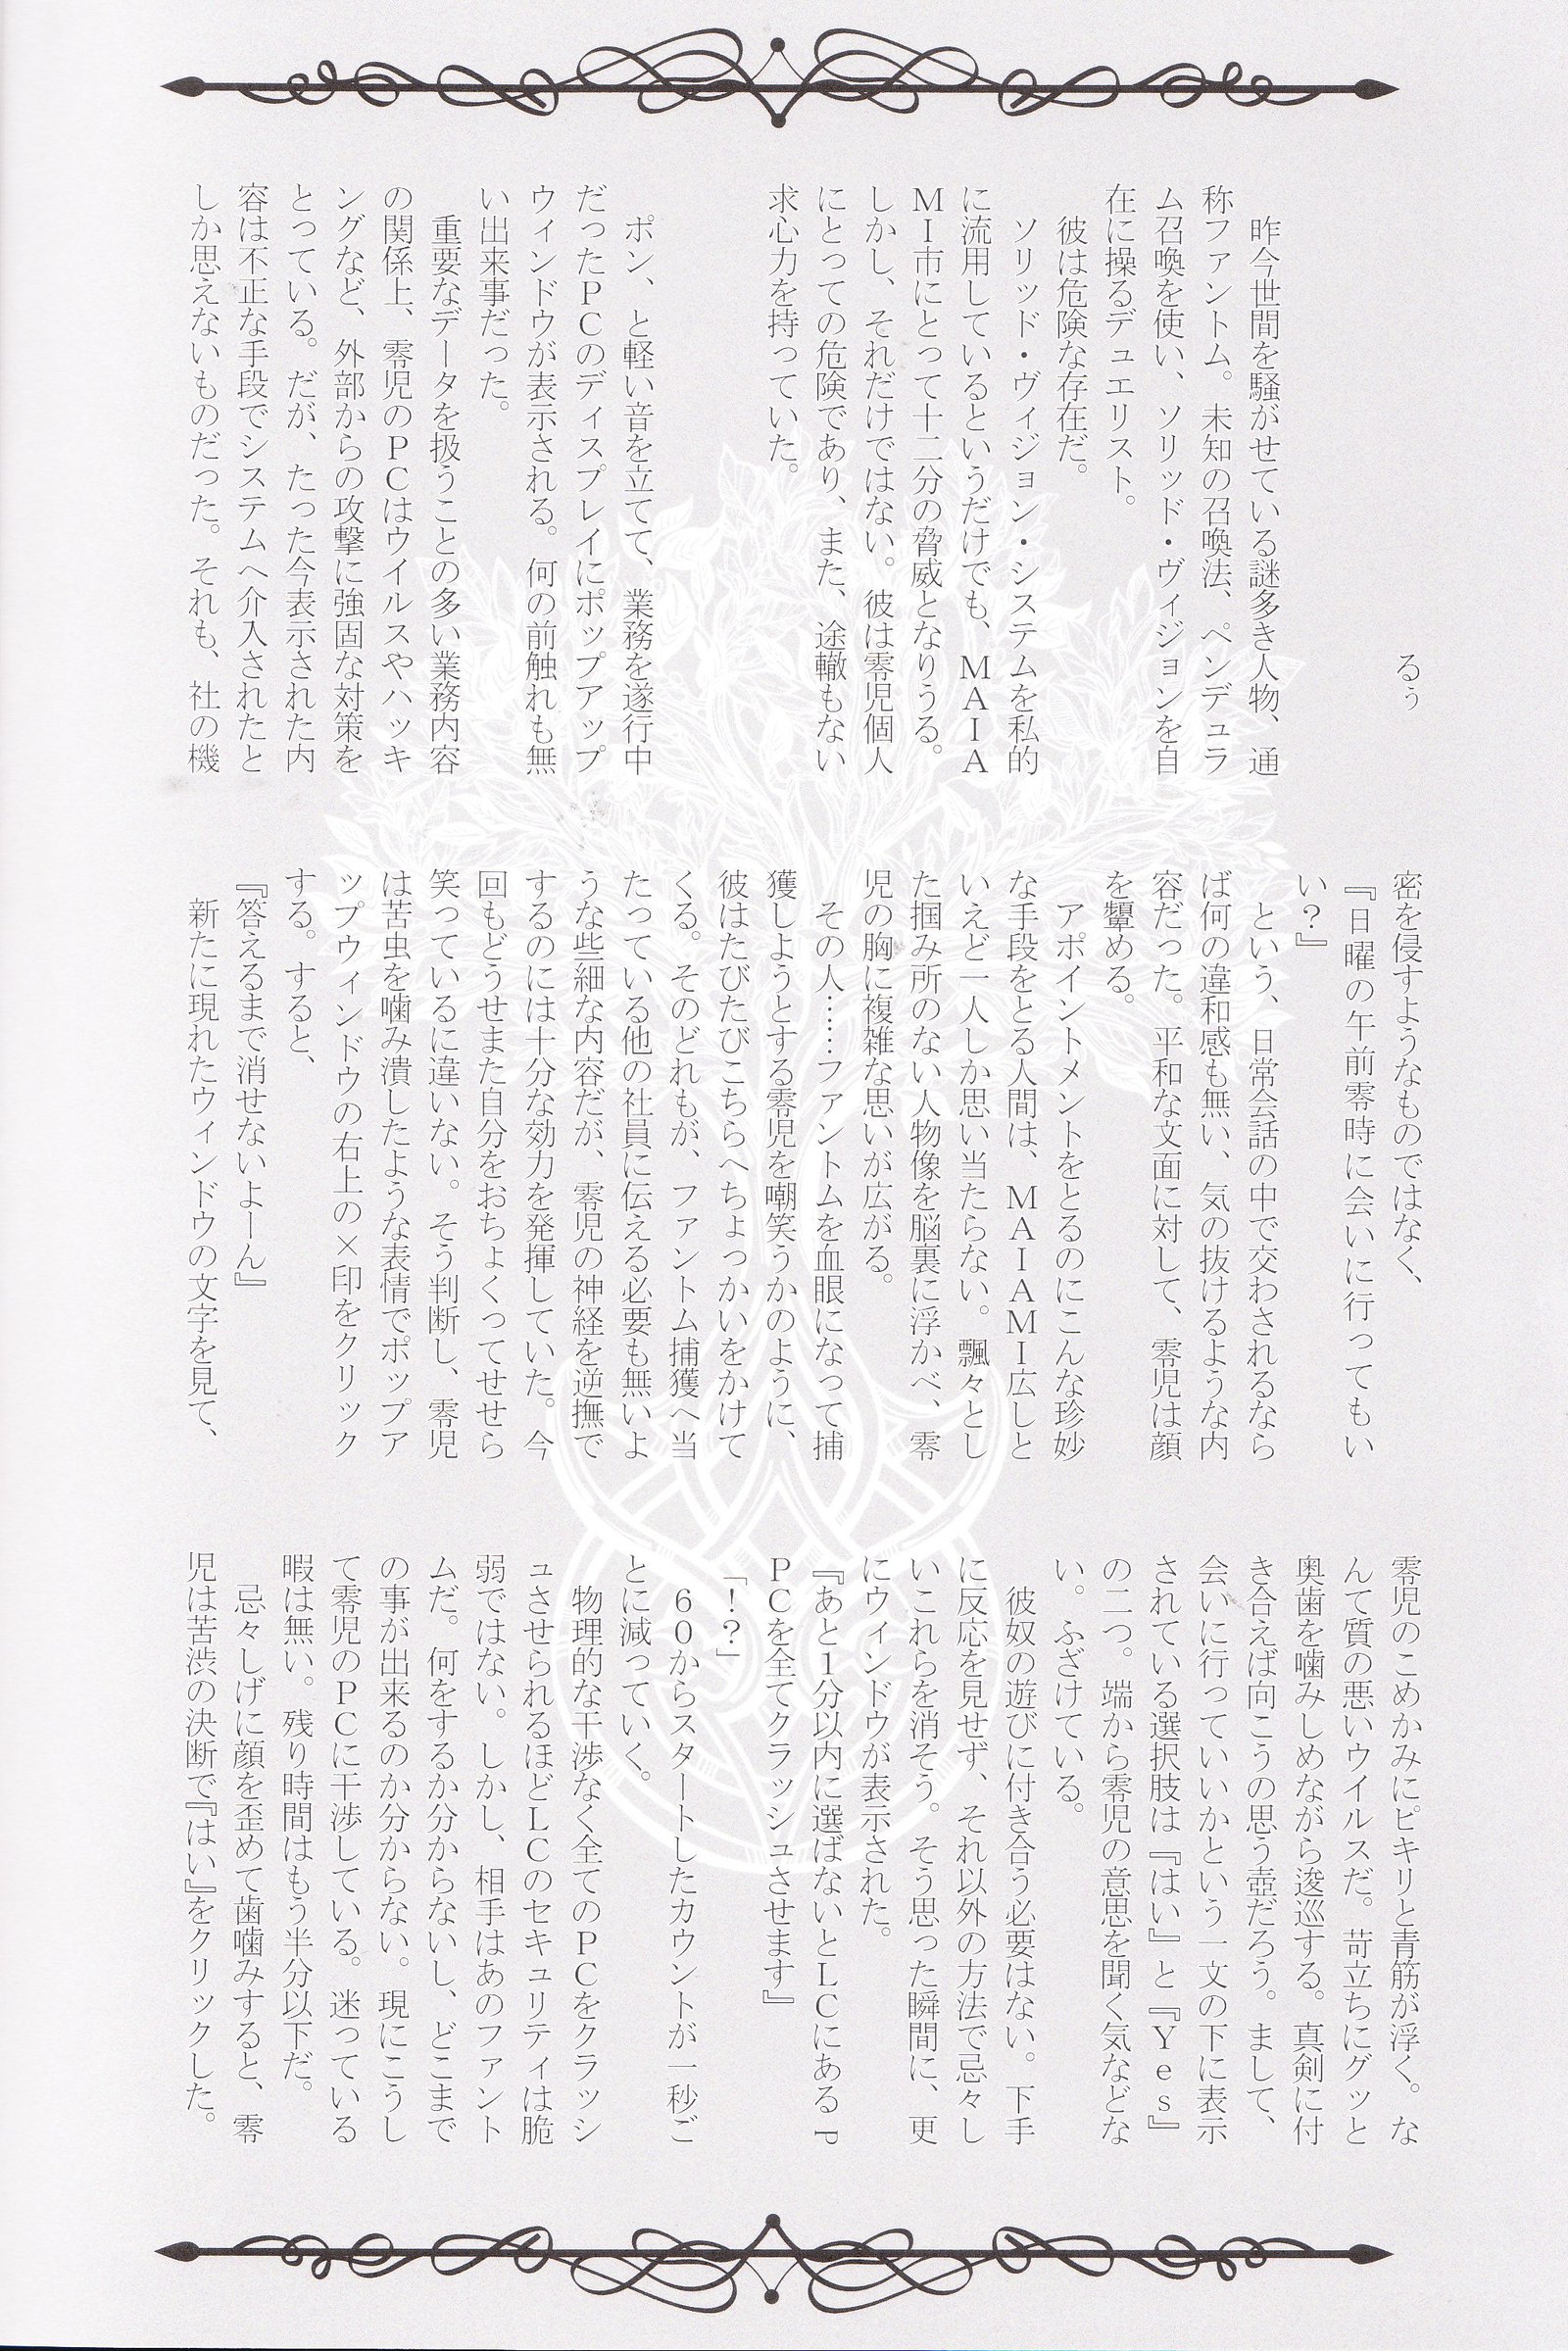 るぅ
　昨今世間を騒がせている謎多き人物、通
称ファントム。未知の召喚法、ペンデュラ
ム召喚を使い、ソリッド・ヴィジョンを自
在に操るデュエリスト。
　彼は危険な存在だ。
　ソリッド・ヴィジョン・システムを私的
に流用しているというだけでも、ＭＡＩＡ
ＭＩ市にとって十二分の脅威となりうる。
しかし、それだけではない。彼は零児個人
にとっての危険であり、また、途轍もない
求心力を持っていた。
　ポン、と軽い音を立てて、業務を遂行中
だったＰＣのディスプレイにポップアップ
ウィンドウが表示される。何の前触れも無
い出来事だった。
　重要なデータを扱うことの多い業務内容
の関係上、零児のＰＣはウイルスやハッキ
ングなど、外部からの攻撃に強固な対策を
とっている。だが、たった今表示された内
容は不正な手段でシステムへ介入されたと
しか思えないものだった。それも、社の機
密を侵すようなものではなく、
『日曜の午前零時に会いに行ってもい
い？』
　という、日常会話の中で交わされるなら
ば何の違和感も無い、気の抜けるような内
容だった。平和な文面に対して、零児は顔
を顰める。
　アポイントメントをとるのにこんな珍妙
な手段をとる人間は、ＭＡＩＡＭＩ広しと
いえど一人しか思い当たらない。飄々とし
た掴み所のない人物像を脳裏に浮かべ、零
児の胸に複雑な思いが広がる。
　その人……ファントムを血眼になって捕
獲しようとする零児を嘲笑うかのように、
彼はたびたびこちらへちょっかいをかけて
くる。そのどれもが、ファントム捕獲へ当
たっている他の社員に伝える必要も無いよ
うな些細な内容だが、零児の神経を逆撫で
するのには十分な効力を発揮していた。今
回もどうせまた自分をおちょくってせせら
笑っているに違いない。そう判断し、零児
は苦虫を噛み潰したような表情でポップア
ップウィンドウの右上の×印をクリック
する。すると、
『答えるまで消せないよーん』
　新たに現れたウィンドウの文字を見て、
零児のこめかみにピキリと青筋が浮く。な
んて質の悪いウイルスだ。苛立ちにグッと
奥歯を噛みしめながら逡巡する。真剣に付
き合えば向こうの思う壺だろう。まして、
会いに行っていいかという一文の下に表示
されている選択肢は『はい』と『Ｙｅｓ』
の二つ。端から零児の意思を聞く気などな
い。ふざけている。
　彼奴の遊びに付き合う必要はない。下手
に反応を見せず、それ以外の方法で忌々し
いこれらを消そう。そう思った瞬間に、更
にウィンドウが表示された。
『あと１分以内に選ばないとＬＣにあるＰ
ＰＣを全てクラッシュさせます』
「！？」
　６０からスタートしたカウントが一秒ご
とに減っていく。
　物理的な干渉なく全てのＰＣをクラッシ
ュさせられるほどＬＣのセキュリティは脆
弱ではない。しかし、相手はあのファント
ムだ。何をするか分からないし、どこまで
の事が出来るのか分からない。現にこうし
て零児のＰＣに干渉している。迷っている
暇は無い。残り時間はもう半分以下だ。
　忌々しげに顔を歪めて歯噛みすると、零
児は苦渋の決断で『はい』をクリックした。